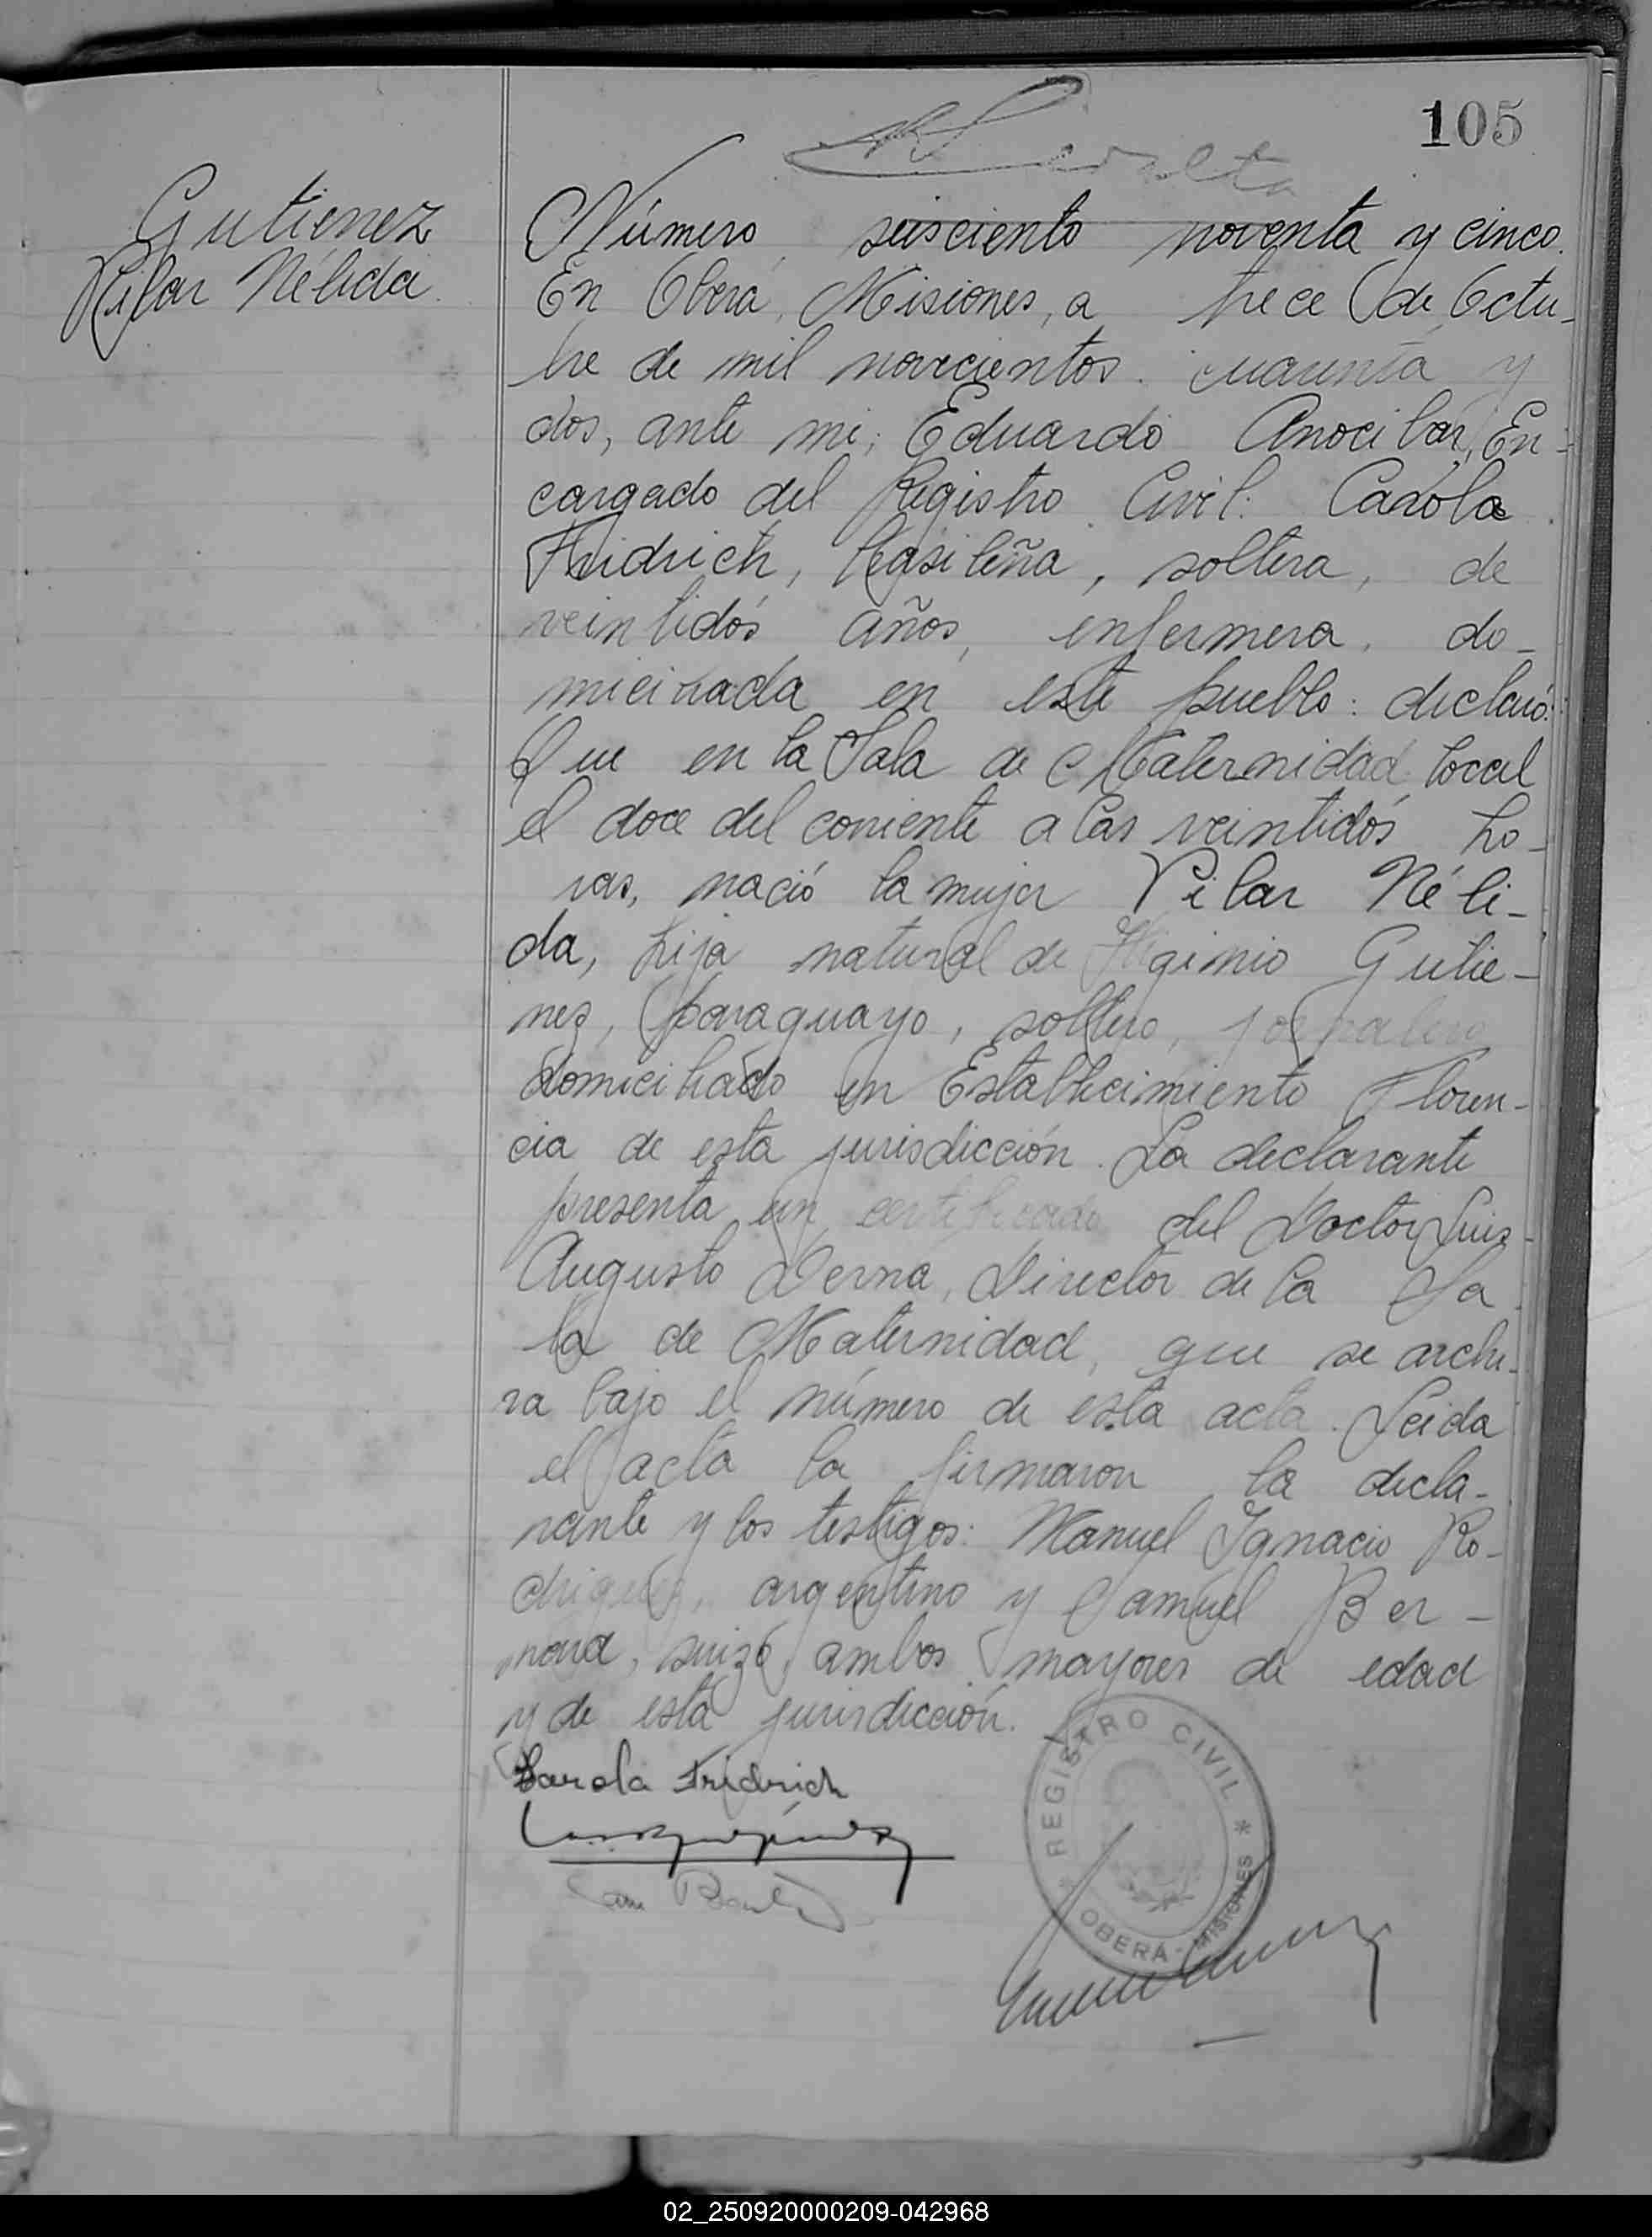 105
Gutierrez
Pilar Nélida
Número seisciento noventa y cinco.
En Oberá, Misiones, a trece de Octu-
bre de mil novecientos cuarenta y
dos, ante mi, Eduardo Anocibar, En-
cargado del Registro Civil: Carola
Fridrich, brasileña, soltera, de
veintidós años, enfermera, do-
miciliada en este pueblo: declaró:
Que en la Sala de Maternidad local
el doce del corriente a las veintidós ho-
ras, nació la mujer Pilar Néli-
da, hija natural de Higinio Gutie-
rrez, paraguayo, soltero, jornalero
domiciliado en Establecimiento Floren-
cia de esta jurisdicción. La declarante
presenta un certificado del Doctor Luis
Augusto Derna, Director de la Sa
la de Maternidad, que se archi-
va bajo el número de esta acta. Leida
el acta la firmaron la decla-
rante y los testigos: Manuel Ignacio Ro-
driguez, argentino y Samuel Ber-
nard, suizo, ambos mayores de edad
y de esta jurisdicción.
Carola Fridrich
REGISTRO CIVIL
OBERÁ - MISIONES
02_250920000209-042968